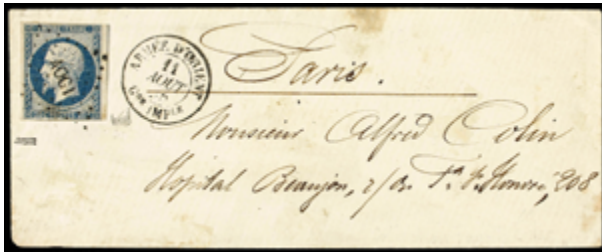 ARMÉE D'ORIENT
11
AOUT
Gde IMPle
Paris.
Monsieur Alfred Colin
Hopital Beaujon, r/du Fg St Honoré, 208